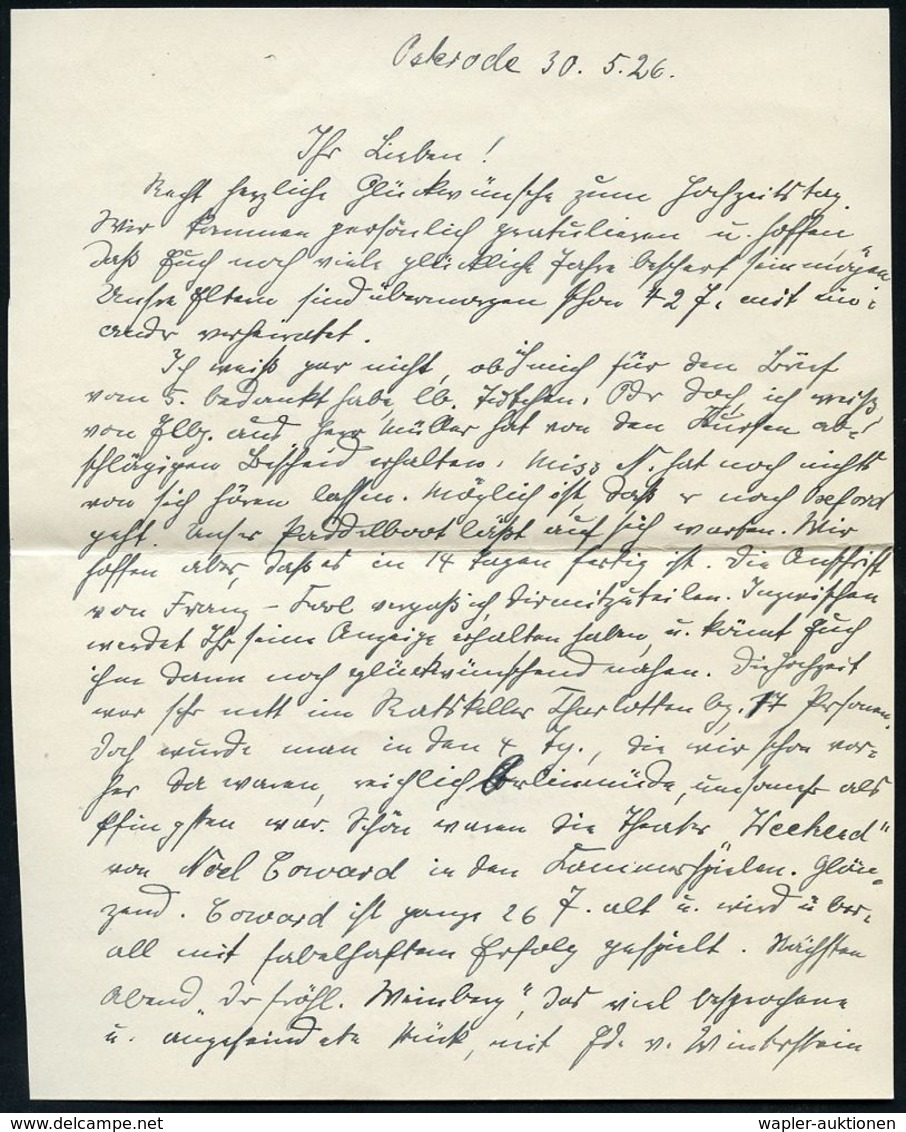 Osterode 30. 5. 26.
Ihr Lieben!
Recht herzliche Glückwünsche zum Hochzeitstag.
Wir kommen persönlich gratulieren u. hoffen,
daß Euch noch viele glückliche Jahre beschert sein mögen.
Unsre Eltern sind übermorgen schon 42 J. mit ein-
andr verheiratet.
Ich weiß gar nicht, ob ich mich für den Brief
vom 5. bedankt habe, lb. Oder doch, ich weiß,
von Elbg. aus. Herr Müller hat von den Kursen ab-
schlägigen Bescheid erhalten. Miss N. hat noch nichts
von sich hören lassen. Möglich ist, daß er nach Oxford
geht. Unser Paddelboot läßt auf sich warten. Wir
hoffen aber, daß es in 14 Tagen fertig ist. Die Anschrift
von Franz-Karl vergaß ich, Dir mitzuteilen. Inzwischen
werdet Ihr seine Anzeige erhalten haben, u. könnt Euch
ihm dann noch glückwünschend nahen. Die Hochzeit
war sehr nett im Ratskeller Charlottenbg. 17 Personen.
Doch wurde man in den 4 Tg., die wir schon vor-
her da waren, reichlich berlinmüde, umsomehr als
Pfingsten war. Schön waren die Theater „Weekend"
von Noel Coward in den Kammerspielen. Glän-
zend. Coward ist ganze 26 J. alt u. wird über-
all mit fabelhaftem Erfolg gespielt. Nächsten
Abend „Dr fröhl. Weinberg", das viel besprochene
u. angefeindete Stück, mit Ed. v. Winterstein
wapler-auktionen